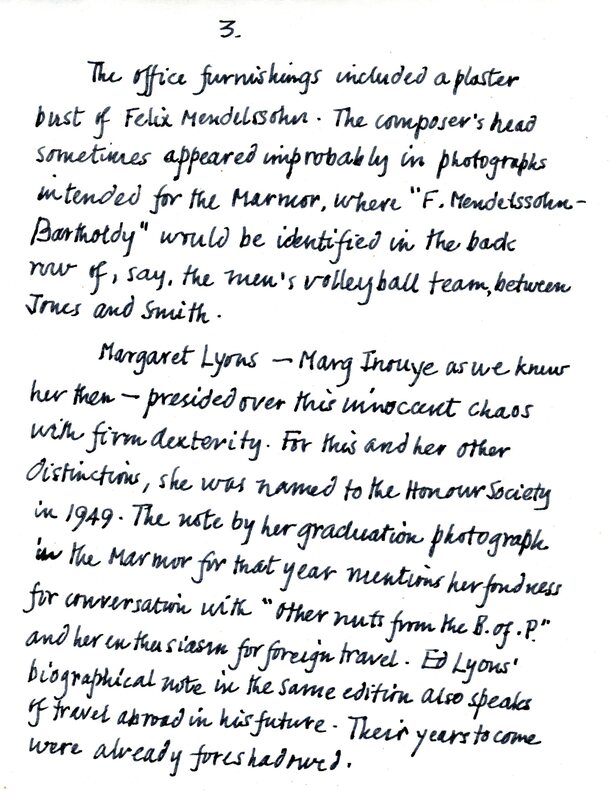 3.
The office furnishings included a plaster
bust of Felix Mendelssohn. The composer's head
sometimes appeared improbably in photographs
intended for the Marmor, where "F. Mendelssohn-
Bartholdy" would be identified in the back
row of, say, the men's volleyball team, between
Jones and Smith.
Margaret Lyons – Marg Inouye as we knew
her then – presided over this innocent chaos
with firm dexterity. For this and her other
distinctions, she was named to the Honour Society
in 1949. The note by her graduation photograph
in the Marmor for that year mentions her fondness
for conversation with "other nuts from the B. of P."
and her enthusiasm for foreign travel. Ed Lyons'
biographical note in the same edition also speaks
of travel abroad in his future. Their years to come
were already foreshadowed.